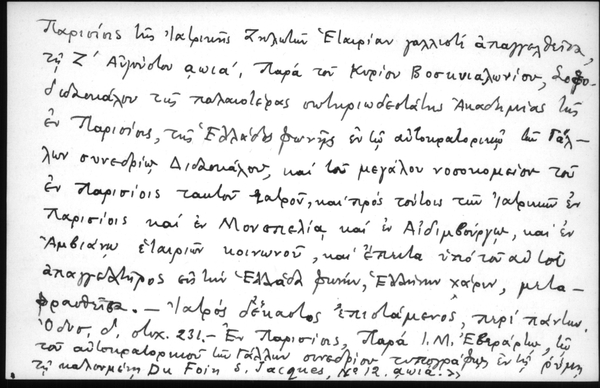 Παρισίοις τῆς Ἰατρικῆς Ζηλωτῶν Ἑταιρίαν γαλλιστὶ ἀπαγγελθεῖσα,
τῇ Ζ´ Αὐγούστου αωια´, Παρὰ τοῦ Κυρίου Βοσκιαλωνίου, Σοφο-
διδασκάλου τῆς παλαιοτέρας σωτηριωδεστάτης Ἀκαδημίας τῆς
ἐν Παρισίοις, τῆς Ἑλλάδος φωνῆς ἐν τῷ αὐτοκρατορικῷ τῶν Γάλ-
λων συνεδρίῳ Διδασκάλου, καὶ τοῦ μεγάλου νοσοκομείου τοῦ
ἐν Παρισίοις τακτοῦ ἰατροῦ, καὶ πρὸς τούτοις τῶν Ἰατρικῶν ἐν
Παρισίοις καὶ ἐν Μονσπελίᾳ καὶ ἐν Αἰδιμβούργῳ, καὶ ἐν
Ἀμβιάνῳ ἑταιριῶν κοινωνοῦ, καὶ ἔπειτα ὑπὸ τοῦ αὐτοῦ
ἀπαγγελτῆρος εἰς τὴν Ἑλλάδα φωνήν, Ἑλλήνων χάριν, μετα-
φρασθεῖσα. — Ἰατρὸς δἕκαστος ἐπιστάμενος, περὶ πάντων.
Ὀδυσ. δ. στιχ. 231. — Ἐν Παρισίοις, Παρὰ Ι. Μ. Ἐβεράρτῳ, τῷ
τοῦ αὐτοκρατορικοῦ τῶν Γάλλων συνεδρίου τυπογράφῳ ἐν τῇ ῥύμῃ
τῇ καλουμένῃ Du Foin S. Jacques, Nº 12. αωια.»